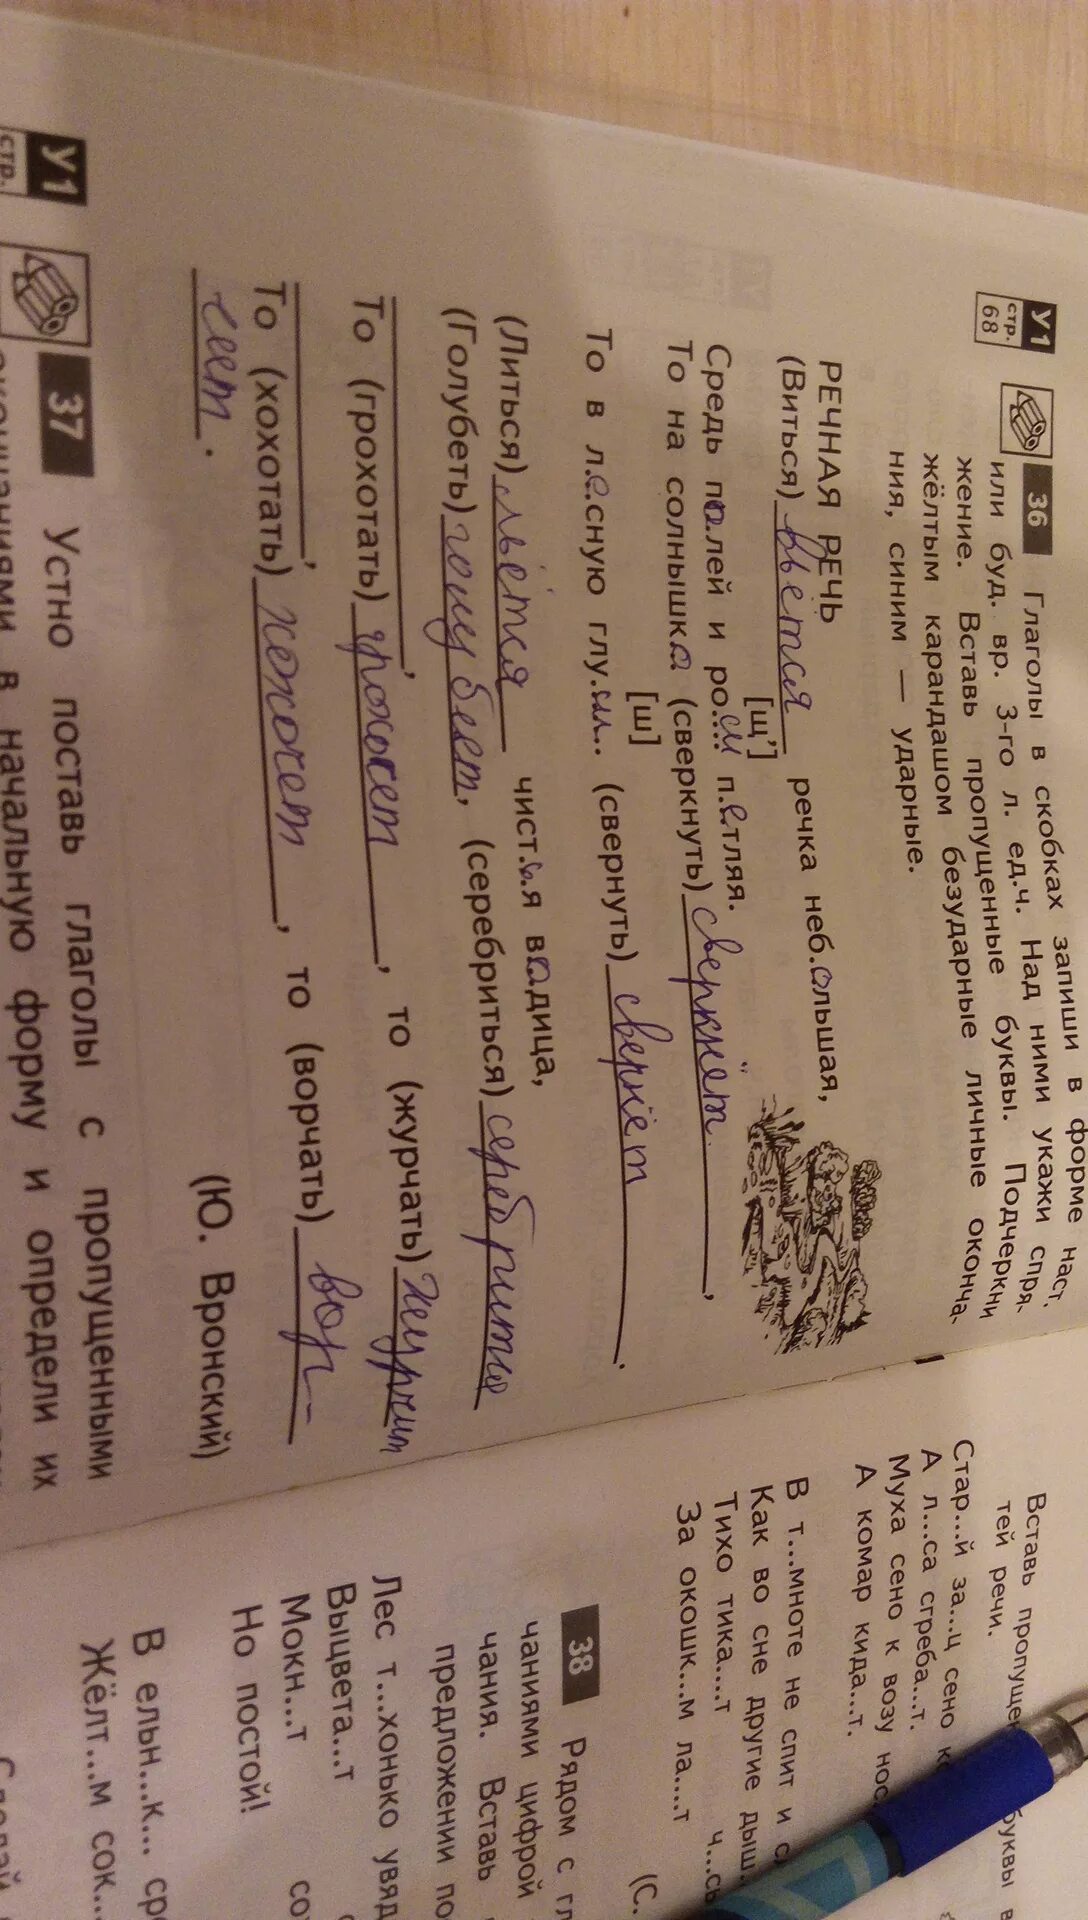 У1
стр.
68
36 Глаголы в скобках запиши в форме наст.
или буд. вр. 3-го л. ед.ч. Над ними укажи спря-
жение. Вставь пропущенные буквы. Подчеркни
жёлтым карандашом безударные личные оконча-
ния, синим — ударные.
РЕЧНАЯ РЕЧЬ
(Виться) вьётся речка неб.ольшая,
[щ']
Средь полей и ро... п.етляя.
То на солнышке (сверкнуть) сверкнёт,
[ш]
То в л.есную глу.шь.. (свернуть) свернёт.
(Литься) льётся чист.а.я водица,
(Голубеть) голубеет, (серебриться) серебрится
То (грохотать) грохочет, то (журчать) журчит
То (хохотать) хохочет, то (ворчать) вор-
чит.
(Ю. Вронский)
У1
стр.
37 Устно поставь глаголы с пропущенными
окончаниями в начальную форму и определи их
Вставь пропущен буквы в
тей речи.
Стар...й за...ц сено к
А л...са сгреба...т.
Муха сено к возу нос
А комар кида...т.
В т...мноте не спит и с
Как во сне другие дыш
Тихо тика....т ч...сы
За окошк...м ла....т
(С.
38 Рядом с гл
чаниями цифрой
чания. Вставь
предложении по
Лес т...хонько увяд
Выцвета...т
Мокн...т со
Но постой!
В ельн...к... ср
Жёлт...м сок...